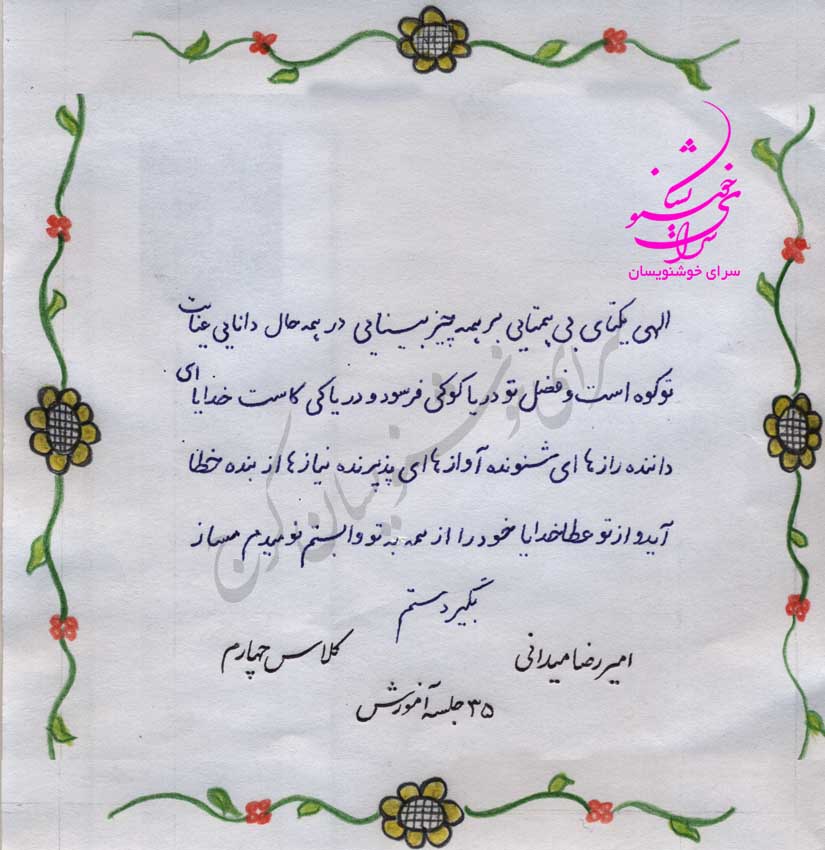 سرای خوشنویسان
سرای خوشنویسان
الهی یکتای بی همتایی بر همه چیز بینایی در همه حال دانایی عنایت
تو کوه است و فضل تو دریا کو کی فرسود و دریا کی کاست خدایا ای
داننده رازها ای شنونده آوازها ای پذیرنده نیازها از بنده خطا
آید و از تو عطا خدایا خود را از همه به تو وابستم نومیدم مساز
بگیر دستم
امیررضا میدانی کلاس چهارم
۳۵ جلسه آموزش